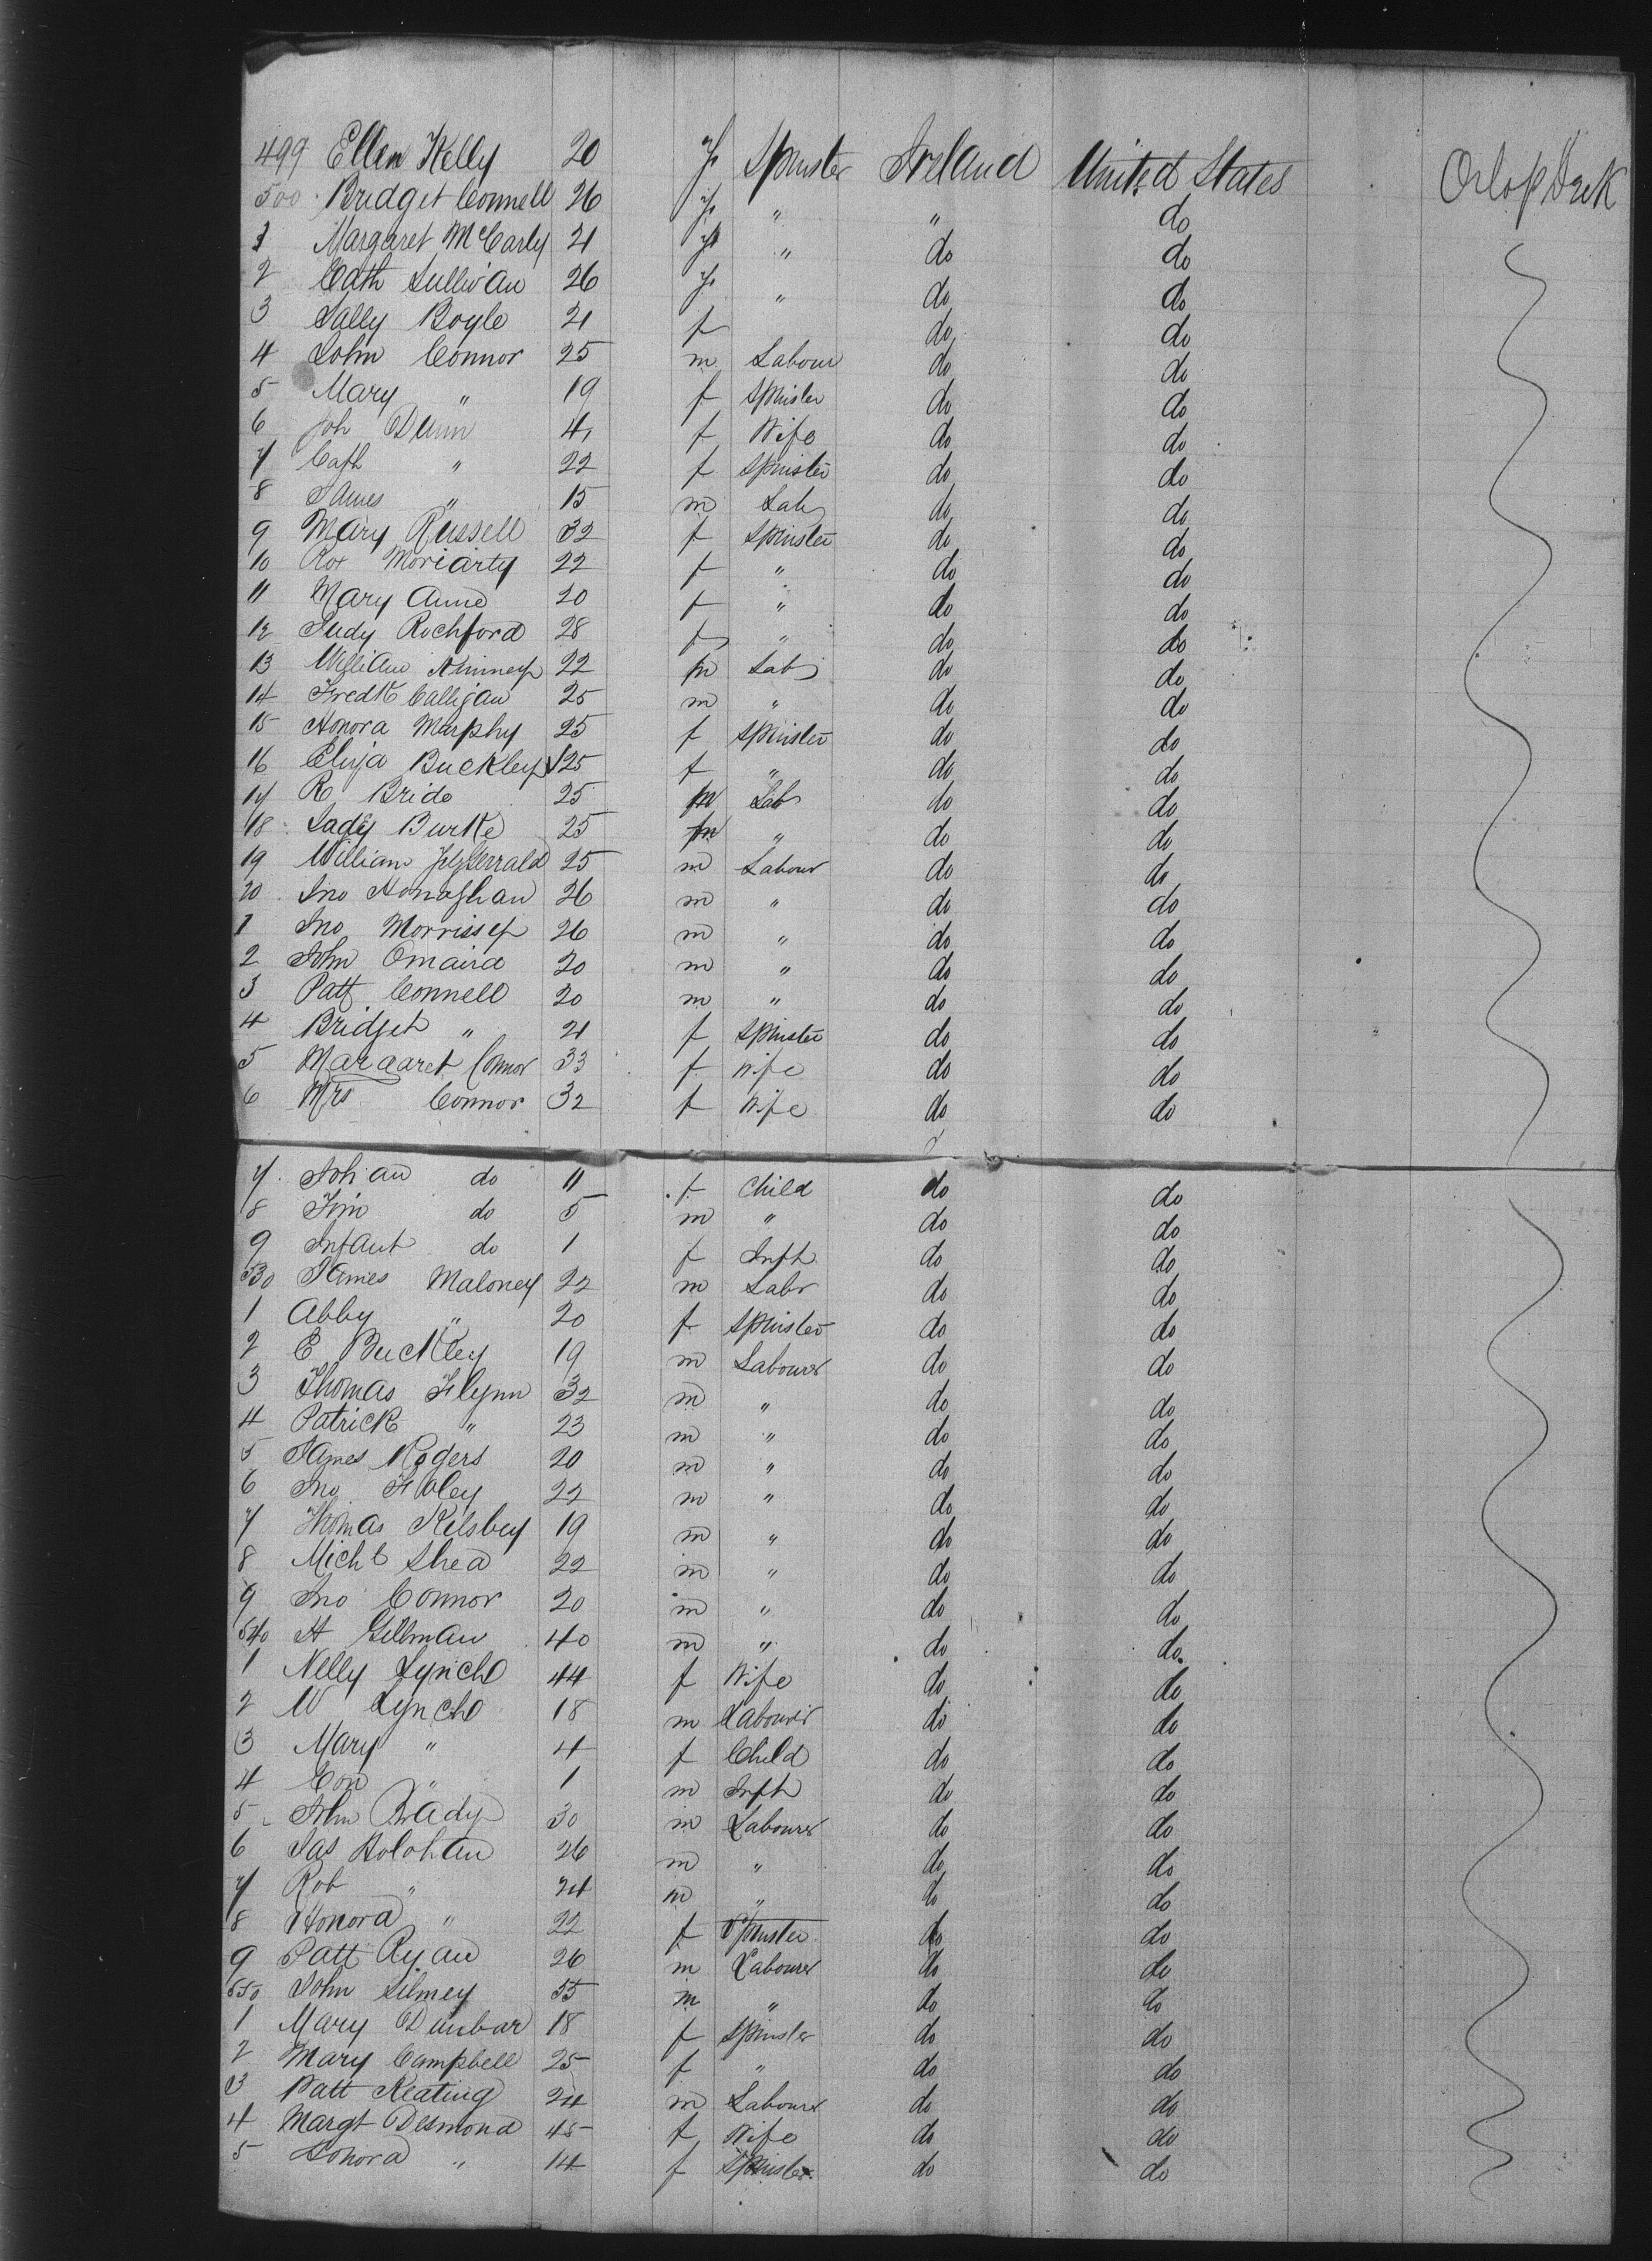 499 Ellen Kelly 20 f Spinster Ireland United States Orlop Deck
500 Bridget Connell 26 f " " do
1 Margaret McCarty 21 f " do do
2 Cath Sullivan 26 f " do do
3 Sally Boyle 21 f " do do
4 John Connor 25 m Labour do do
5 Mary " 19 f Spinster do do
6 Joh Dunn 41 f Wife do do
7 Cath " 22 f Spinster do do
8 James " 15 m Lab do do
9 Mary Russell 32 f Spinster do do
10 Moriarty 22 f " do do
11 Mary Anne 20 f " do do
12 Judy Rochford 28 f " do do
13 William 22 m Lab do do
14 Fredk Calligan 25 m " do do
15 Honora Murphy 25 f Spinster do do
16 Eliza Buckley 25 f " do do
17 R Bride 25 m Lab do do
18 Burke 25 m " do do
19 William Fitzgerrald 25 m Labour do do
20 Jno Honaghan 26 m " do do
1 Jno Morrissey 26 m " do do
2 John Omaira 20 m " do do
3 Patt Connell 20 m " do do
4 Bridget " 21 f Spinster do do
5 Margaret Connor 33 f Wife do do
6 Mrs Connor 32 f Wife do do
7 Johan do 11 f Child do do
8 Tim do 5 m " do do
9 Infant do 1 f Inft do do
530 James Maloney 22 m Labr do do
1 Abby " 20 f Spinster do do
2 E Buckley 19 m Labourer do do
3 Thomas Flynn 32 m " do do
4 Patrick " 23 m " do do
5 James Rogers 20 m " do do
6 Jno Foley 22 m " do do
7 Thomas Kelsbey 19 m " do do
8 Michl Shea 22 m " do do
9 Jno Connor 20 m " do do
540 H Gellman 40 m " do do
1 Nelly Lynch 44 f Wife do do
2 W Lynch 18 m Labourer do do
3 Mary " 4 f Child do do
4 Con " 1 m Inft do do
5 John Brady 30 m Labourer do do
6 Jas Holohan 26 m " do do
7 Rob " 24 m " do do
8 Honora " 22 f Spinster do do
9 Patt Ryan 26 m Labourer do do
550 John Silmey 55 m " do do
1 Mary Dunbar 18 f Spinster do do
2 Mary Campbell 25 f " do do
3 Patt Keating 24 m Labourer do do
4 Margt Desmond 45 f Wife do do
5 Honora " 14 f Spinster do do